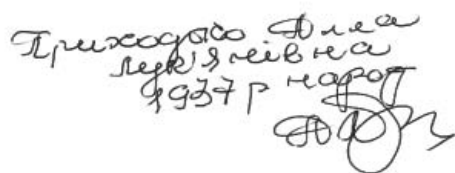 Приходько Алла
Лук'янівна
1937 р народ